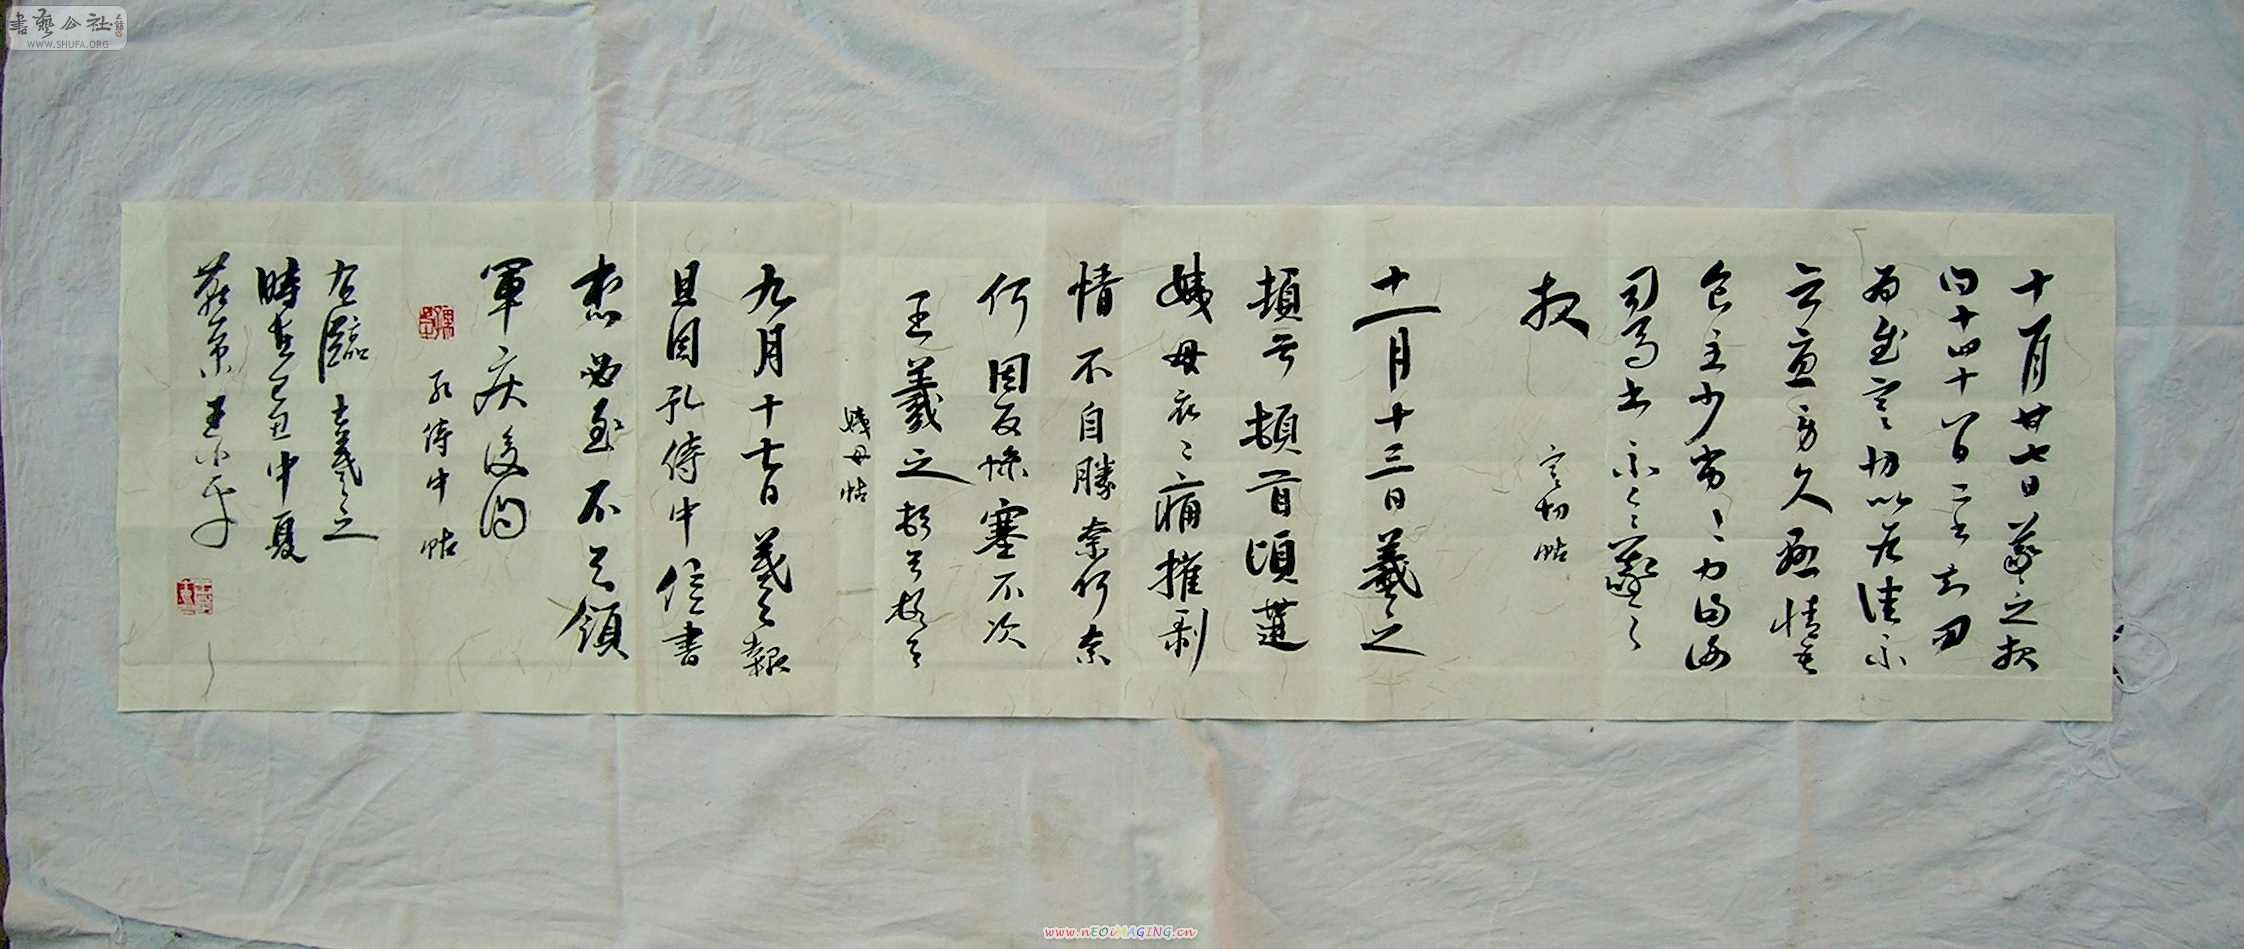 十一月廿七日羲之报
得十四十八日二書知問
為慰寒切比各佳不
念憂勞久懸情吾
食至少劣〻力因謝
司馬書不一一羲之
报
寒切帖
十一月十三日羲之
頓首頓首頃遘
姨母哀〻痛摧剥
情不自勝奈何奈
何因反慘塞不次
王羲之頓首頓首
姨母帖
九月十七日羲之報
且因孔侍中信書
想必至不知領
軍疾後問
孔侍中帖
右臨王羲之
時在己丑中夏
燕京王
書藝公社
WWW.SHUFA.ORG
www.nEOiMAGING.cn